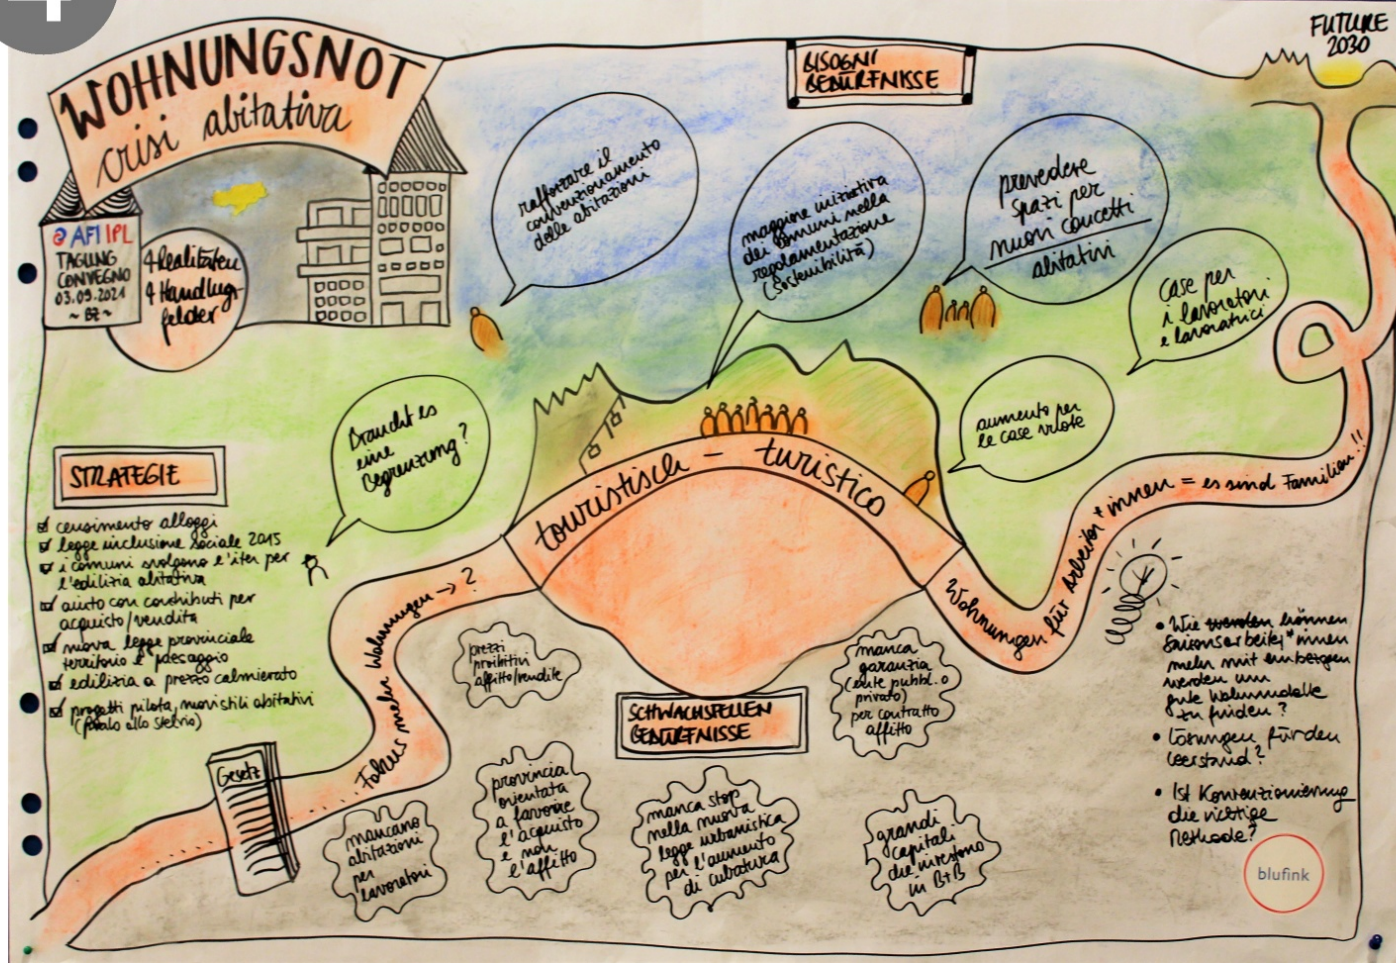 WOHNUNGSNOT
crisi abitativa
AFI IPL
TAGUNG
CONVEGNO
03.09.2021
~ BZ ~
4 Realitäten
4 Handlugs-
felder
BISOGNI
BEDÜRFNISSE
FUTURE
2030
rafforzare il
convenzionamento
delle abitazioni
maggiore iniziativa
dei comuni nella
regolamentazione
(sostenibilità)
prevedere
spazi per
nuovi concetti
abitativi
Case per
i lavoratori
e lavoratrici
aumento per
le case vuote
Braucht es
eine
Begrenzung?
STRATEGIE
censimento alloggi
legge inclusione sociale 2015
i comuni svolgono l'iter per
l'edilizia abitativa
aiuto con contributi per
acquisto/vendita
nuova legge provinciale
territorio e paesaggio
edilizia a prezzo calmierato
progetti pilota, nuovi stili abitativi
allo Stelvio)
Gesetz
mehr Wohnungen → ?
touristisch - turistico
Wohnungen für Arbeiter*innen = es sind Familien!!
prezzi
proibitivi
affitto/vendite
manca
garanzia
(ente pubbl. o
privato)
per contratto
affitto
SCHWACHSTELLEN
BEDÜRFNISSE
mancano
abitazioni
per
lavoratori
provincia
orientata
a favorire
l'acquisto
e non
l'affitto
manca stop
nella nuova
legge urbanistica
per l'aumento
di cubatura
grandi
capitali
che investono
in B+B
• Wie werden können
Saisonsarbeiter*innen
mehr mit einbezogen
werden um
gute Wohnmodelle
zu finden?
• Lösungen für den
Leerstand?
• Ist Konvenzionierung
die richtige
Methode?
blufink